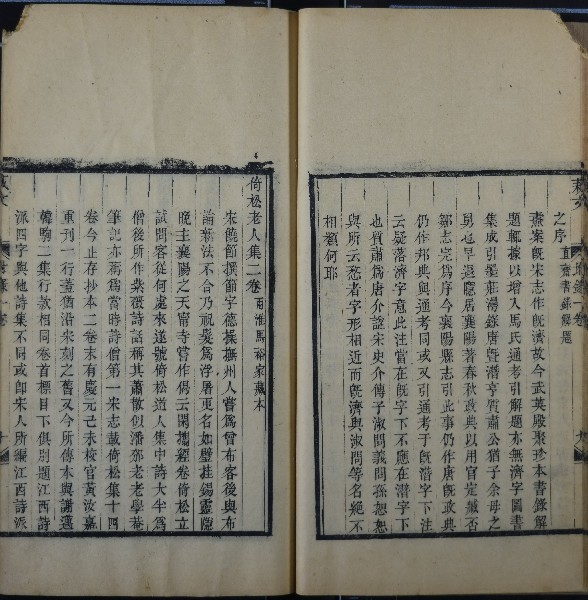 之序 直齋書錄解題
燾案旣宋志作旣濟故今武英殿聚珍本書錄解
題輒據以增入馬氏通考引解題亦無濟字圖書
集成引唐旣濟字
鄒志完爲序今襄陽縣志引此事仍作唐旣政典
仍作邦典與通考同或又引通考于旣濟字下注
云疑潛濟字意此注當在旣字下不應在潛字下
也質肅爲唐介諡宋史介傳子淑問義問孫恕
與所云者字形相近而旣濟與淑問等名絕不
相類何耶
倚松老人集二卷 兩淮馬裕家藏本
宋饒節撰節字德操撫州人嘗爲曾布客後與布
論新法不合乃祝髮爲浮屠更名如璧挂錫靈隱
晚主襄陽之天甯寺嘗作偈云閒攜經卷倚松立
試問客從何處來遂號倚松道人集中詩大半爲
僧後所作紫薇詩話稱其蕭散似潘邠老老學菴
筆記亦稱爲當時詩僧第一宋志載倚松集十四
卷今止存抄本二卷末有慶元己未校官黃汝嘉
重刊一行蓋猶沿宋刻之舊又今所傳本與謝薖
韓駒二集行款相同卷首標目下俱別題江西詩
派四字與他詩集不同或卽宋人所編江西詩派